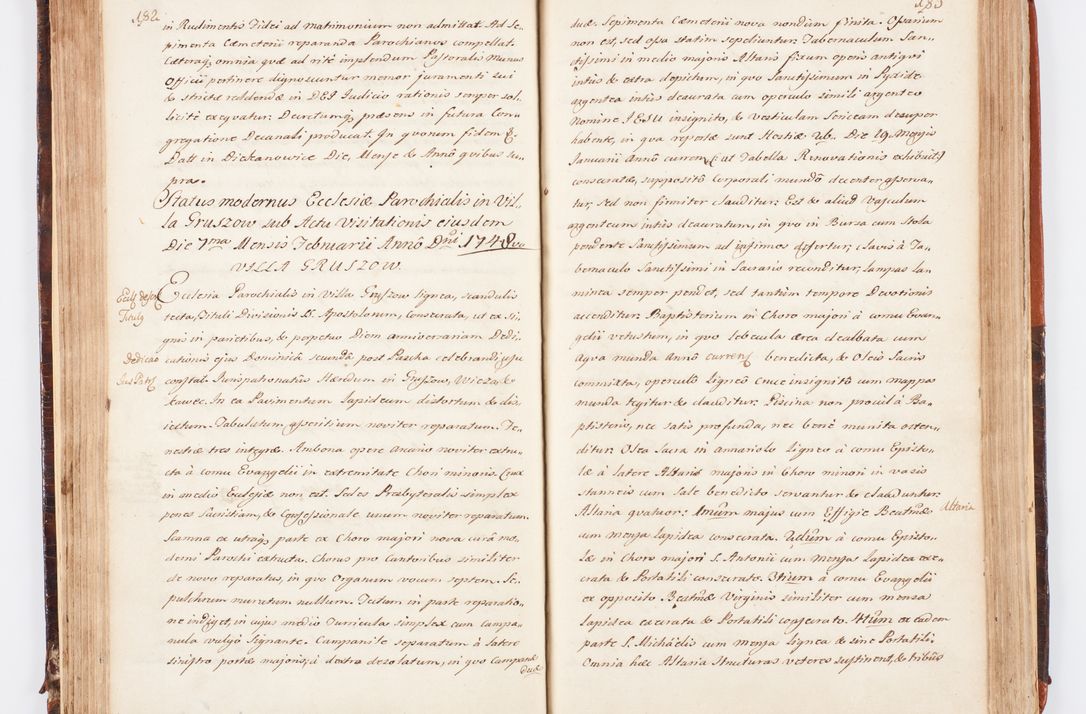 182
in Rudimentis Fidei ad matrimonium non admittat. Ad Se-
pimenta Cæmeterii reparanda Parochianos compellat.
Cæteraq; omnia quæ ad ritè implendum Pastoralis Munus
Officii pertinere dignoscuntur memor juramenti sui
& strictæ reddendæ in DEI Judicio rationis semper sol-
licitè exequatur: Decretumq; præsens in futura Con-
gregatione Decanali producat. In quorum fidem &.
Datt in Dziekanowice Die, Mense & Annô quibus su-
pra.
Status modernus Ecclesiæ Parochialis in Vil-
la Gruszow sub Actu Visitationis ejusdem
Die 7ma Mensis Februarii Annô Dni 1748vo
VILLA GRUSZOW.
Titulq
Ecclesia Parochialis in Villa Gruszow lignea, scandulis
tecta, Tituli Divisionis S. Apostolorum, Consecrata, ut ex Si-
gnis in parietibus, & perpetuo Diem anniversariam Dedi-
Dedicao
cationis ejus Dominicâ secundâ post Pascha celebrandi, usu
Jus Patrq
constat. Jurispatronatûs Hæredum in Gruszow,
In ea Pavimentum lapideum distortum & dis-
jectum. Tabulatum asseritium noviter reparatum. Fe-
nestræ tres integræ. Ambona opere arcario noviter extru-
cta à cornu Evangelii in extremitate Chori minoris. Crux
in medio Ecclesiæ non est. Sedes Presbyteralis simplex
penes Sacristiam, & Confessionale unum noviter reparatum.
Scamna ex utraq; parte ex Choro majori nova curâ mo-
derni Parochi extructa. Chorus pro Cantoribus similiter
de novo reparatus, in quo Organum vocum septem. Se-
pulchrum muratum nullum. Tectum in parte reparatio-
ne indiget, in cujus medio Turricula simplex cum campa-
nula vulgô Signante. Campanile separatum à latere
sinistro portæ majoris, à dextra desolatum, in quo Campanæ
duæ
183
duæ. Sepimenta Cæmeterii nova nondum finita. Ossarium
non est, sed ossa statim sepeliuntur: Tabernaculum San-
ctissimi in medio majoris Altaris fixum operis antiqui
intùs & extra depictum, in quo Sanctissimum in Pyxide
argentea intùs deaurata cum operculo simili argenteo
nomine IESU insignito, & vesticulam sericeam desuper
habente, in qua repertæ sunt Hostiæ Die 19. Mensis
Januarii Annô curren (ut Tabella Renovationis exhibuit)
consecratæ, suppositô Corporali mundô decenter asserva-
tur, sed non firmiter clauditur. Est & aliud Vasculum
argenteum intùs deauratum, in quo in Bursa cum Stola
pendente Sanctissimum ad infirmos defertur; clavis à Ta-
bernaculo Sanctissimi in Sacrario reconditur, lampas la-
minea semper pendet, sed tantùm tempore Devotionis
accenditur. Baptisterium in Choro majori à cornu Evan-
gelii vetustum, in quo lebecula ærea dealbata cum
aqua munda Annô curren benedicta, & Oleis Sacris
commixta, operculô ligneô Cruce insignitô cum mappa
munda tegitur & clauditur. Piscina non procul à Ba-
ptisterio, nec satis profunda, nec benè munita osten-
ditur. Olea Sacra in armariolo ligneo à cornu Episto-
læ à latere Altaris majoris in Choro minori in vasis
stanneis cum sale benedicto servantur & clauduntur.
Altaria quatuor: Imum majus cum Effigie Beatmæ
Altaria
cum mensa lapidea consecrata. 2dum à cornu Episto-
læ in Choro majori S. Antonii cum mensa lapidea exe-
crata & Portatili consecrato. 3tium à cornu Evangelii
ex opposito Beatmæ Virginis similiter cum mensa
lapidea execrata & Portatili consecrato. 4tum ex eadem
parte S. Michaëlis cum mensa lignea & sine Portatili.
Omnia hæc Altaria Structuras veteres sustinent, & tribus